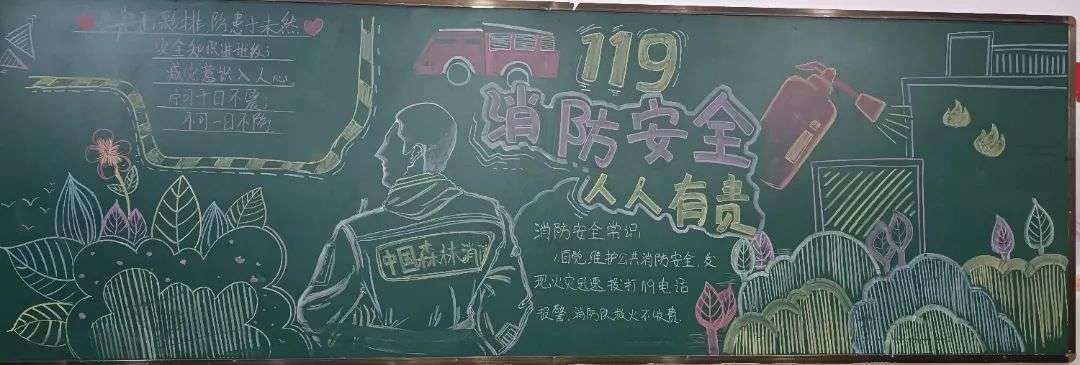 防患于未然
安全知识进班级;
意识入人心
日不
不可一日不防;
119
消防安全
人人有责
中国森林消
消防安全常识
1.自觉维护公共消防安全,发
现火灾迅速拨打119电话
报警,消防队救火不收费.